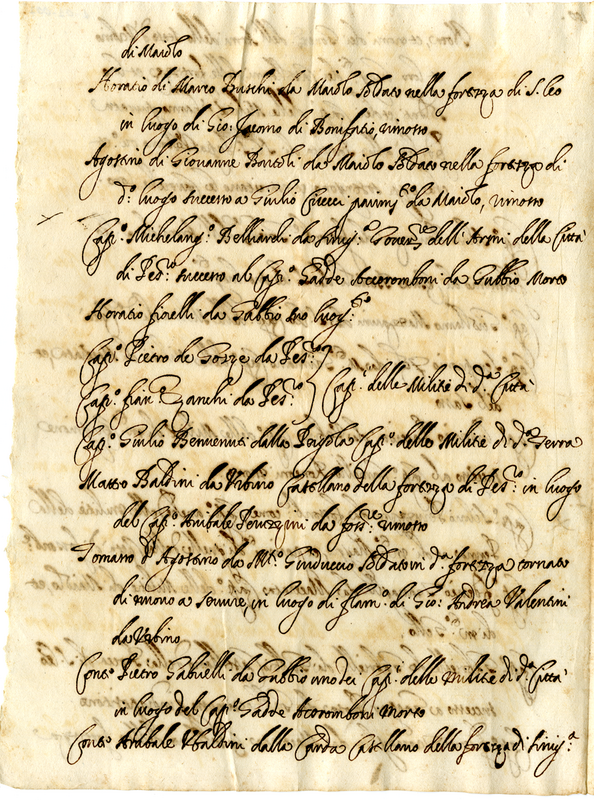 di Maiolo
Horatio di Marco Buschi da Maiolo soldato nella fortezza di S. Leo
in luogo di Gio: Jacomo di Bonifatio, rimosso
Agostino di Giovanne da Maiolo soldato nella fortezza di
d.º luogo successo a Giulio Cucci da Maiolo, rimosso
Cap.º Michelang.º Belliardi da Sinig.ª dell'Armi della Città
di Pes.º successo al Cap.º Gadde Accoromboni da Gubbio Morto
Horatio fioelli da Gubbio suo luog.
Cap.º Pietro de Gozze da Pes.º
Cap.º Zanchi da Pes.º Cap.ⁱ delle Militie di d.ª Città
Cap.º Giulio Benvenuti dalla Pergola Cap.º delle Militie di d.ª Terra
Matteo Baldini da Urbino Castellano della fortezza di Pes.º in luogo
del Cap.º Anibale da foss.e rimosso
Tomasso d'Agostino da Mt.º Guiduccio soldato in d.ª fortezza tornato
di nuovo a servire, in luogo di flam.º di Gio: Andrea Valentini
da Urbino
Conte Pietro Gabrielli da Gubbio uno dei Cap.ⁱ delle Militie di d.ª Città
in luogo del Cap.º Gadde Accoromboni Morto
Conte Anibale Ubaldini dalla Carda Castellano della fortezza di Sinig.ª